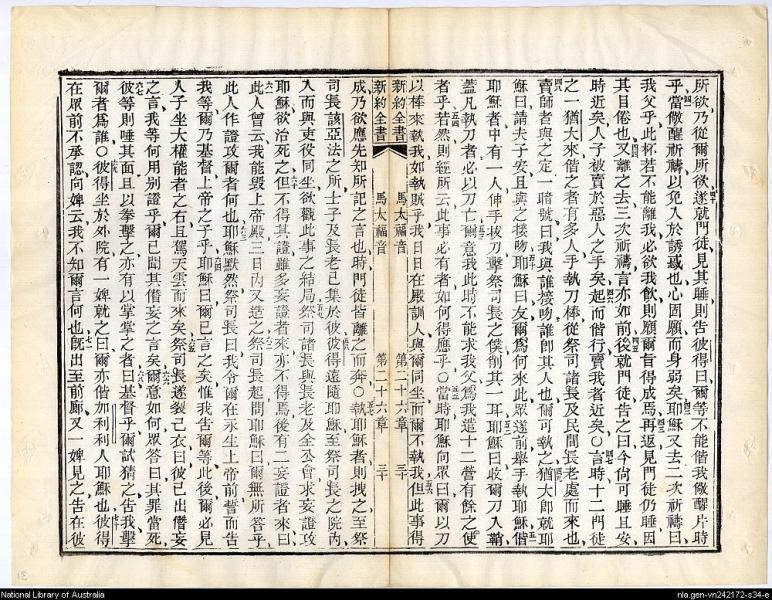 所欲乃從爾所欲遂就門徒見其睡則告彼得曰爾等不能偕我儆醒片時
乎當儆醒祈禱以免入於誘惑也心固願而身弱矣耶穌又去二次祈禱曰
我父乎此杯若不能離我必欲我飲則願爾旨得成焉再返見門徒仍睡因
其目倦也又離之去三次祈禱言亦如前後就門徒告之曰今尙可睡且安
時近矣人子被賣於惡人之手矣起而偕行賣我者近矣○言時十二門徒
之一猶大來偕之者有多人手執刀棒從祭司諸長及民間長老處而來也
賣師者與之定一暗號曰我與誰接吻誰卽其人也爾可執之猶大卽就耶
穌曰請夫子安且與之接吻耶穌曰友爾爲何來此眾遂前舉手執耶穌偕
耶穌者中有一人伸手拔刀擊祭司長之僕削其一耳耶穌曰收爾刀入鞘
蓋凡執刀者必以刀亡爾意我此時不能求我父爲我遣十二營有餘之使
者乎若然則經所云此事必有者如何得應乎○當時耶穌向眾曰爾以刀
以棒來執我如執賊乎我日日在殿訓人與爾同坐而爾不執我但此事得
新約全書 馬太福音 第二十六章 三十
新約全書 馬太福音 第二十六章 三十
成乃欲應先知所記之言也時門徒皆離之而奔○執耶穌者則拽之至祭
司長該亞法之所士子及長老已集於彼彼得遠隨耶穌至祭司長之院內
入而與吏役同坐欲觀此事之結局祭司諸長與長老及全公會求妄證攻
耶穌欲治死之但不得其證雖多妄證者來亦不得焉後有二妄證者來曰
此人曾云我能毀上帝殿三日內又造之祭司長起問耶穌曰爾無所答乎
此人作證攻爾者何也耶穌默然祭司長曰我令爾在永生上帝前誓而告
我等爾乃基督上帝之子乎耶穌曰爾已言之矣惟我告爾等此後爾必見
人子坐大權能者之右且駕天雲而來矣祭司長遂裂己衣曰彼已出僭妄
之言我等何用別證乎爾已聞其僭妄之言矣爾意如何眾答曰其罪當死
彼等則唾其面且以拳擊之亦有以掌掌之者曰基督乎爾試猜之告我擊
爾者爲誰○彼得坐於外院有一婢就之曰爾亦偕加利利人耶穌也彼得
在眾前不承認向婢云我不知爾言何也旣出至前廊又一婢見之告在彼
National Library of Australia
nla.gen-vn242172-s34-e